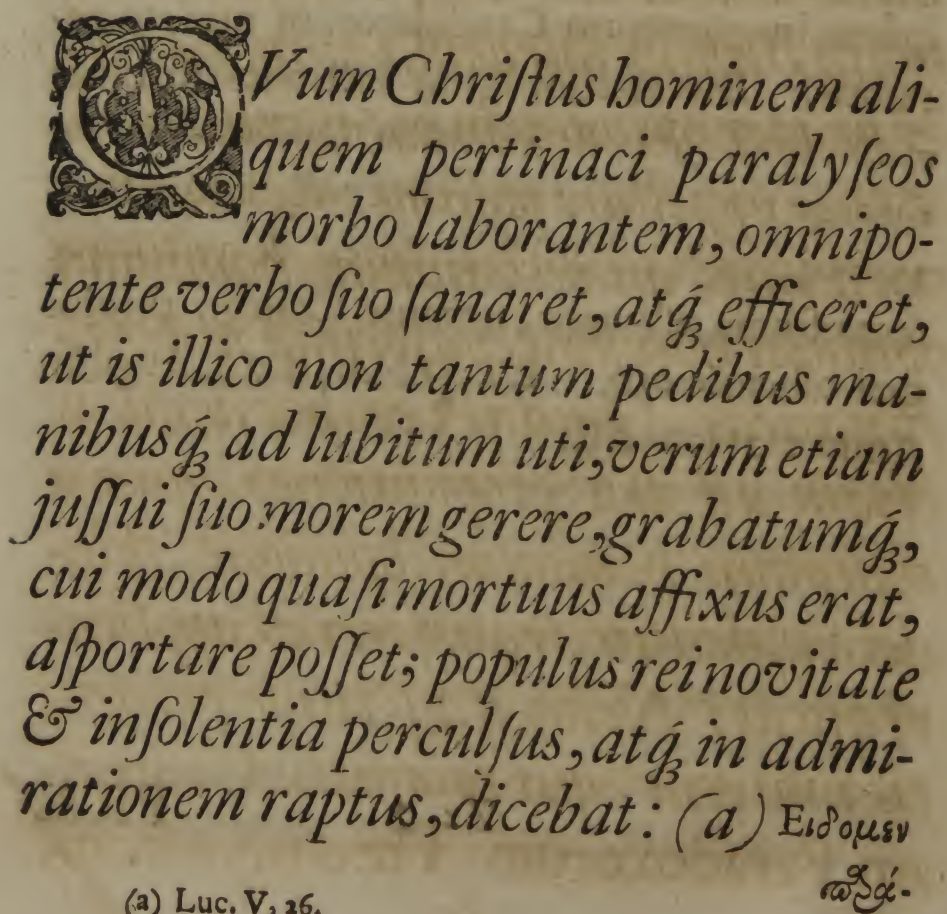 QVum Chriſtus hominem ali-
quem pertinaci paralyſeos
morbo laborantem, omnipo-
tente verbo ſuo ſanaret, atq́ꝫ efficeret,
ut is illico non tantum pedibus ma-
nibusq́ꝫ ad lubitum uti, verum etiam
juſſui ſuo morem gerere, grabatumq́ꝫ,
cui modo quaſi mortuus affixus erat,
aſportare poſſet; populus rei novitate
& inſolentia perculſus, atq́ꝫ in admi-
rationem raptus, dicebat: (a) Ειδομεν
παρά-
(a) Luc. V, 26.